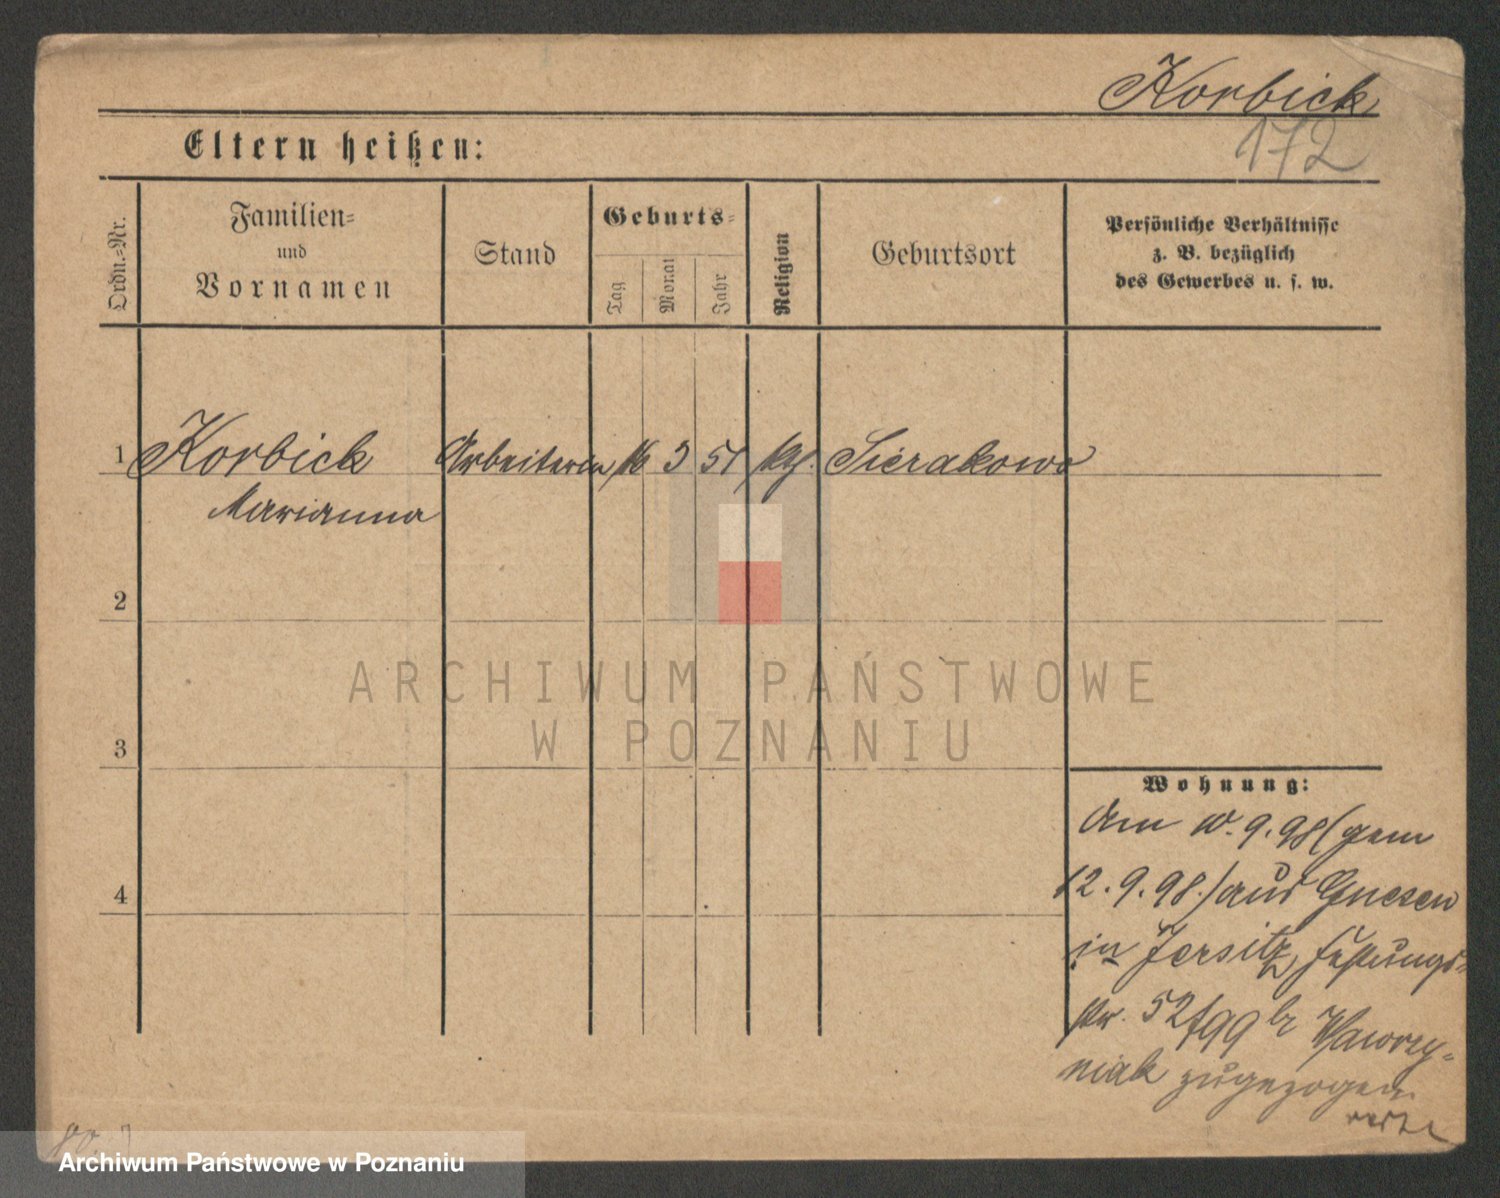 Korbick
172
Eltern heißen:
Ordn.=Nr.
Familien=
und
Vornamen
Stand
Geburts=
Tag
Monat
Jahr
Religion
Geburtsort
Persönliche Verhältnisse
z. B. bezüglich
des Gewerbes u. s. w.
1 Korbick Arbeiterin 16 3 51 kg. Sierakowo
Marianna
2
ARCHIWUM PAŃSTWOWE
W POZNANIU
3
Wohnung:
Am 10.9.98 (gem
4
12.9.98.) aus Gnesen
in Jersitz, Festungs=
str. 52/99 br Wawrzy=
niak zugezogen.
Archiwum Państwowe w Poznaniu